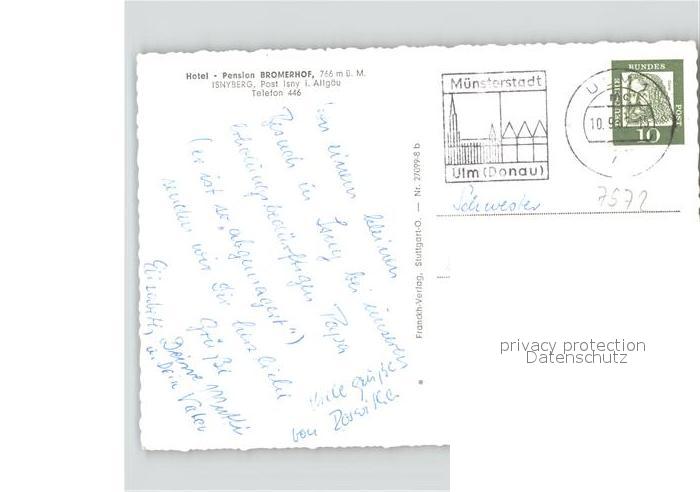 Hotel - Pension BROMERHOF, 766 m ü. M.
ISNYBERG, Post Isny i. Allgäu
Telefon 446
Von einem kleinen
Besuch in Isny bei unserem
erholungsbedürftigen Papa
(er ist so „abgemagert“)
senden wir Dir herzliche
Grüße
Deine Mutti
u. Dein Vater
Elisabeth
Viele Grüße
von
Franckh-Verlag, Stuttgart-O. — Nr. 27099-8 b
Münsterstadt
Ulm (Donau)
ULM
10.9.
DEUTSCHE
BUNDES
POST
10
Schwester
7572
privacy protection
Datenschutz